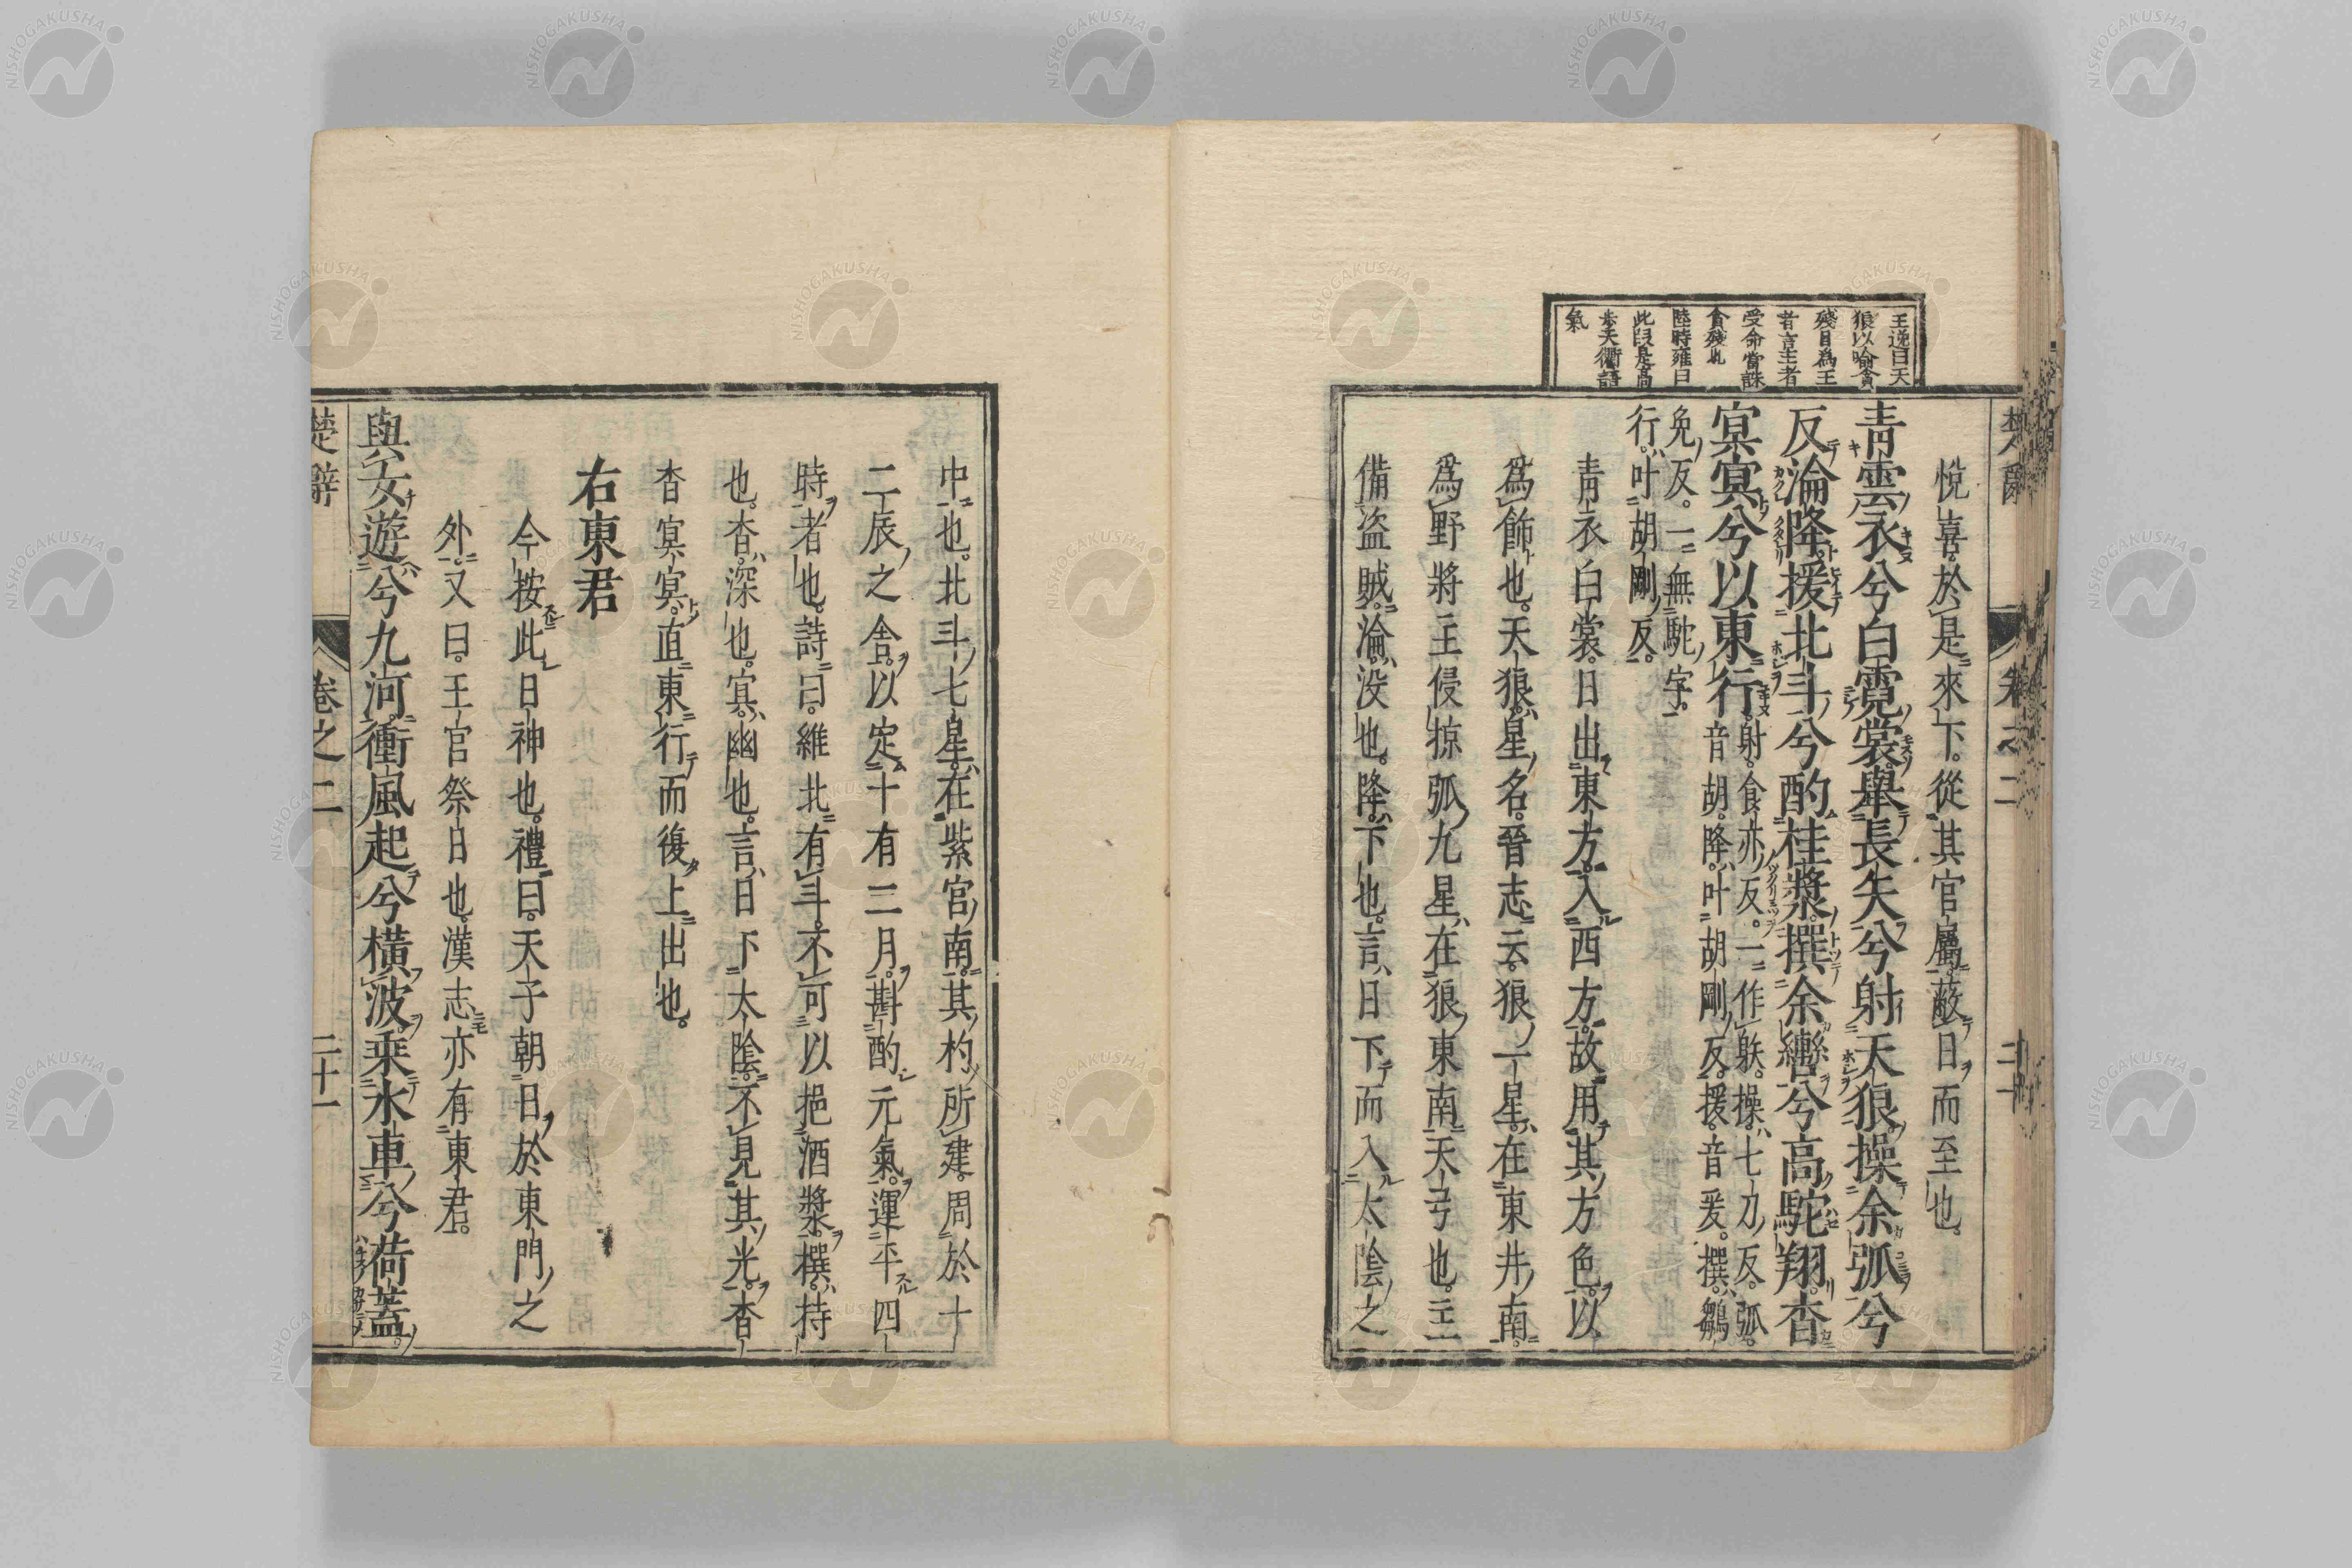 王逸曰天
狼以喩貪
殘目為王
者言王者
受命當誅
貪殘也
陸時雍曰
此段是高
步天衢語
氣
悅喜。於是來下。從其官屬。蔽日而至也。
青雲衣兮白霓裳。舉長矢兮射天狼。操余弧兮
反淪降。援北斗兮酌桂漿。撰余轡兮高駝翔。杳
冥冥兮以東行。射。食亦反。一作躲。操。七刀反。弧。
音胡。降。叶胡剛反。援。音爰。撰。鶵
免反。一無駝字。
行。叶胡剛反。
青衣白裳。日出東方。入西方。故用其方色。以
爲飾也。天狼。星名。晉志云。狼一星。在東井南。
爲野將主侵掠弧九星。在狼東南。天弓也。主
備盜賊。淪。没也。降。下也。言日下而入太陰之
楚辭 卷之二 二十
中也。北斗七星。在紫宮南。其杓所建。周於十
二辰之舍。以定十有二月。斟酌元氣。運平四
時者也。詩曰。維北有斗。不可以挹酒漿。撰。持
也。杳。深也。冥。幽也。言日下太陰。不見其光。杳
杳冥冥。直東行而復上出也。
右東君
今按此日神也。禮曰。天子朝日於東門之
外。又曰。王宮祭日也。漢志亦有東君。
與女遊兮九河。衝風起兮橫波。乘水車兮荷蓋。
楚辭 卷之二 二十一
NISHOGAKUSHA